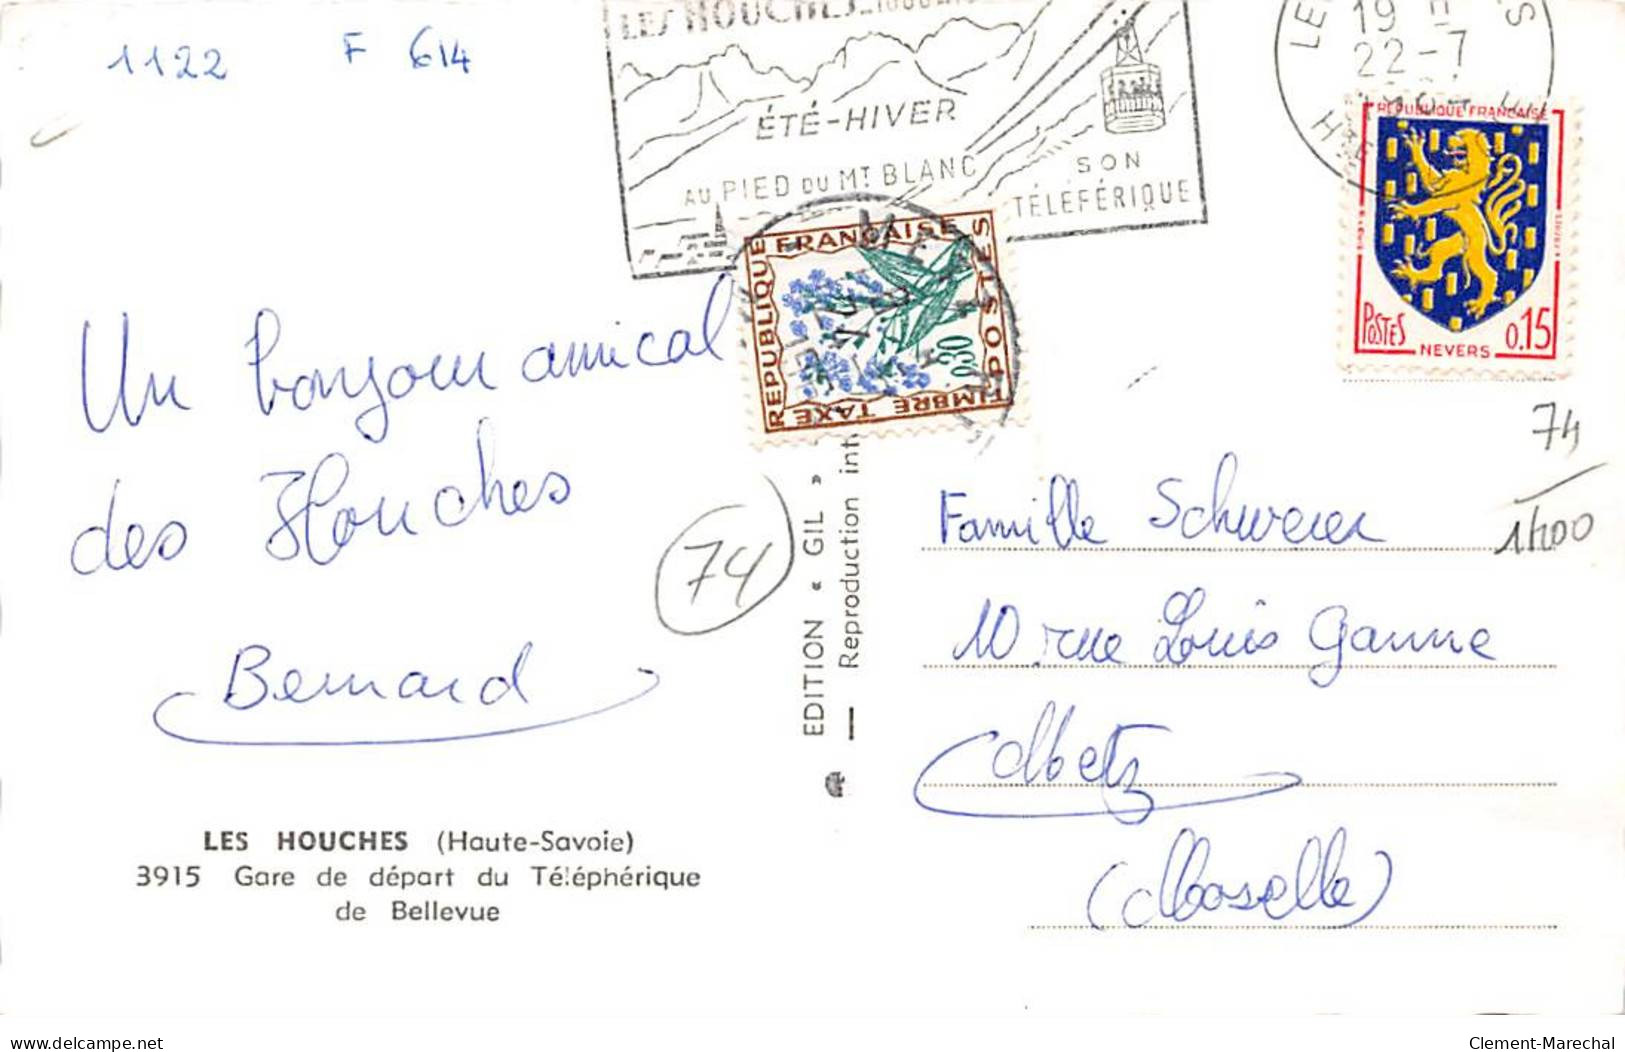 1122 F 614
LES HOUCHES_1000m
ÉTÉ-HIVER
AU PIED DU MT BLANC
SON
TÉLÉFÉRIQUE
19
22-7
HTE
RÉPUBLIQUE FRANÇAISE
POSTES
0.15
NEVERS
REPUBLIQUE
FRANÇAISE
POSTES
TIMBRE TAXE
0,30
Un bonjour amical
des Houches
Bernard
74
EDITION « GIL »
Reproduction int
74
1h00
Famille Schwerer
10 rue Louis Ganne
Metz
(Moselle)
LES HOUCHES (Haute-Savoie)
3915 Gare de départ du Téléphérique
de Bellevue
delcampe.net
Clement-Marechal